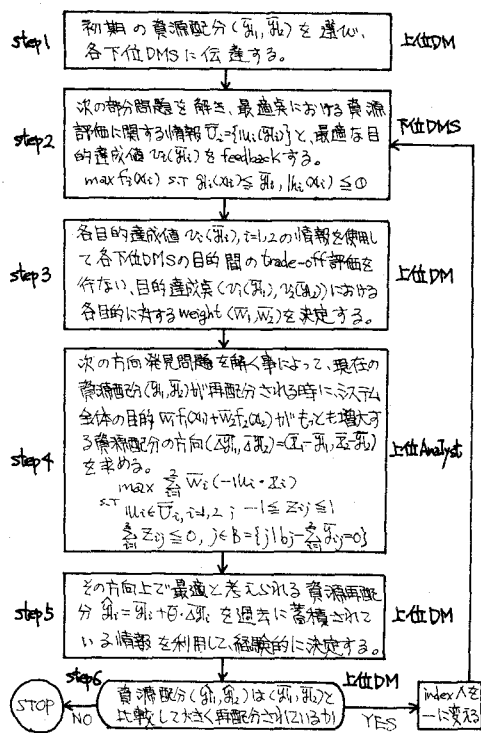 step1
初期の資源配分(ȳ1, ȳ2)を選び、
各下位DMSに伝達する。
上位DM
step2
次の部分問題を解き、最適点における資源
評価に関する情報 Ūi={μi(ȳi)}と、最適な目
的達成値 vi(ȳi)をfeedbackする。
max fi(xi) s.t gi(xi)≦ȳi, hi(xi)≦0
下位DMS
step3
各目的達成値 vi(ȳi), i=1,2の情報を使用し
て各下位DMSの目的間のtrade-off評価を
行ない、目的達成点(v1(ȳ1), v2(ȳ2))における
各目的に対するweight(w̄1, w̄2)を決定する。
上位DM
step4
次の方向発見問題を解く事によって、現在の
資源配分(ȳ1, ȳ2)が再配分される時に、システム
全体の目的 w̄1f1(x1)+w̄2f2(x2)がもっとも増大す
る資源配分の方向(Δȳ1, Δȳ2)=(z̄1-ȳ1, z̄2-ȳ2)
を求める。
max Σ w̄i(-μi・zi)
s.t μi∈Ūi, i=1,2 ; -1≦zij≦1
Σ zij≦0, j∈B={j|bj-Σȳij=0}
上位Analyst
step5
その方向上で最適と考えられる資源再配
分 ŷi=ȳi+θ̄・Δȳiを過去に蓄積されて
いる情報を利用して、経験的に決定する。
上位DM
step6
上位DM
資源配分(ŷ1, ŷ2)は(ȳ1, ȳ2)と
比較して大きく再配分されているか
STOP
NO
YES
index ∧を
—に変える